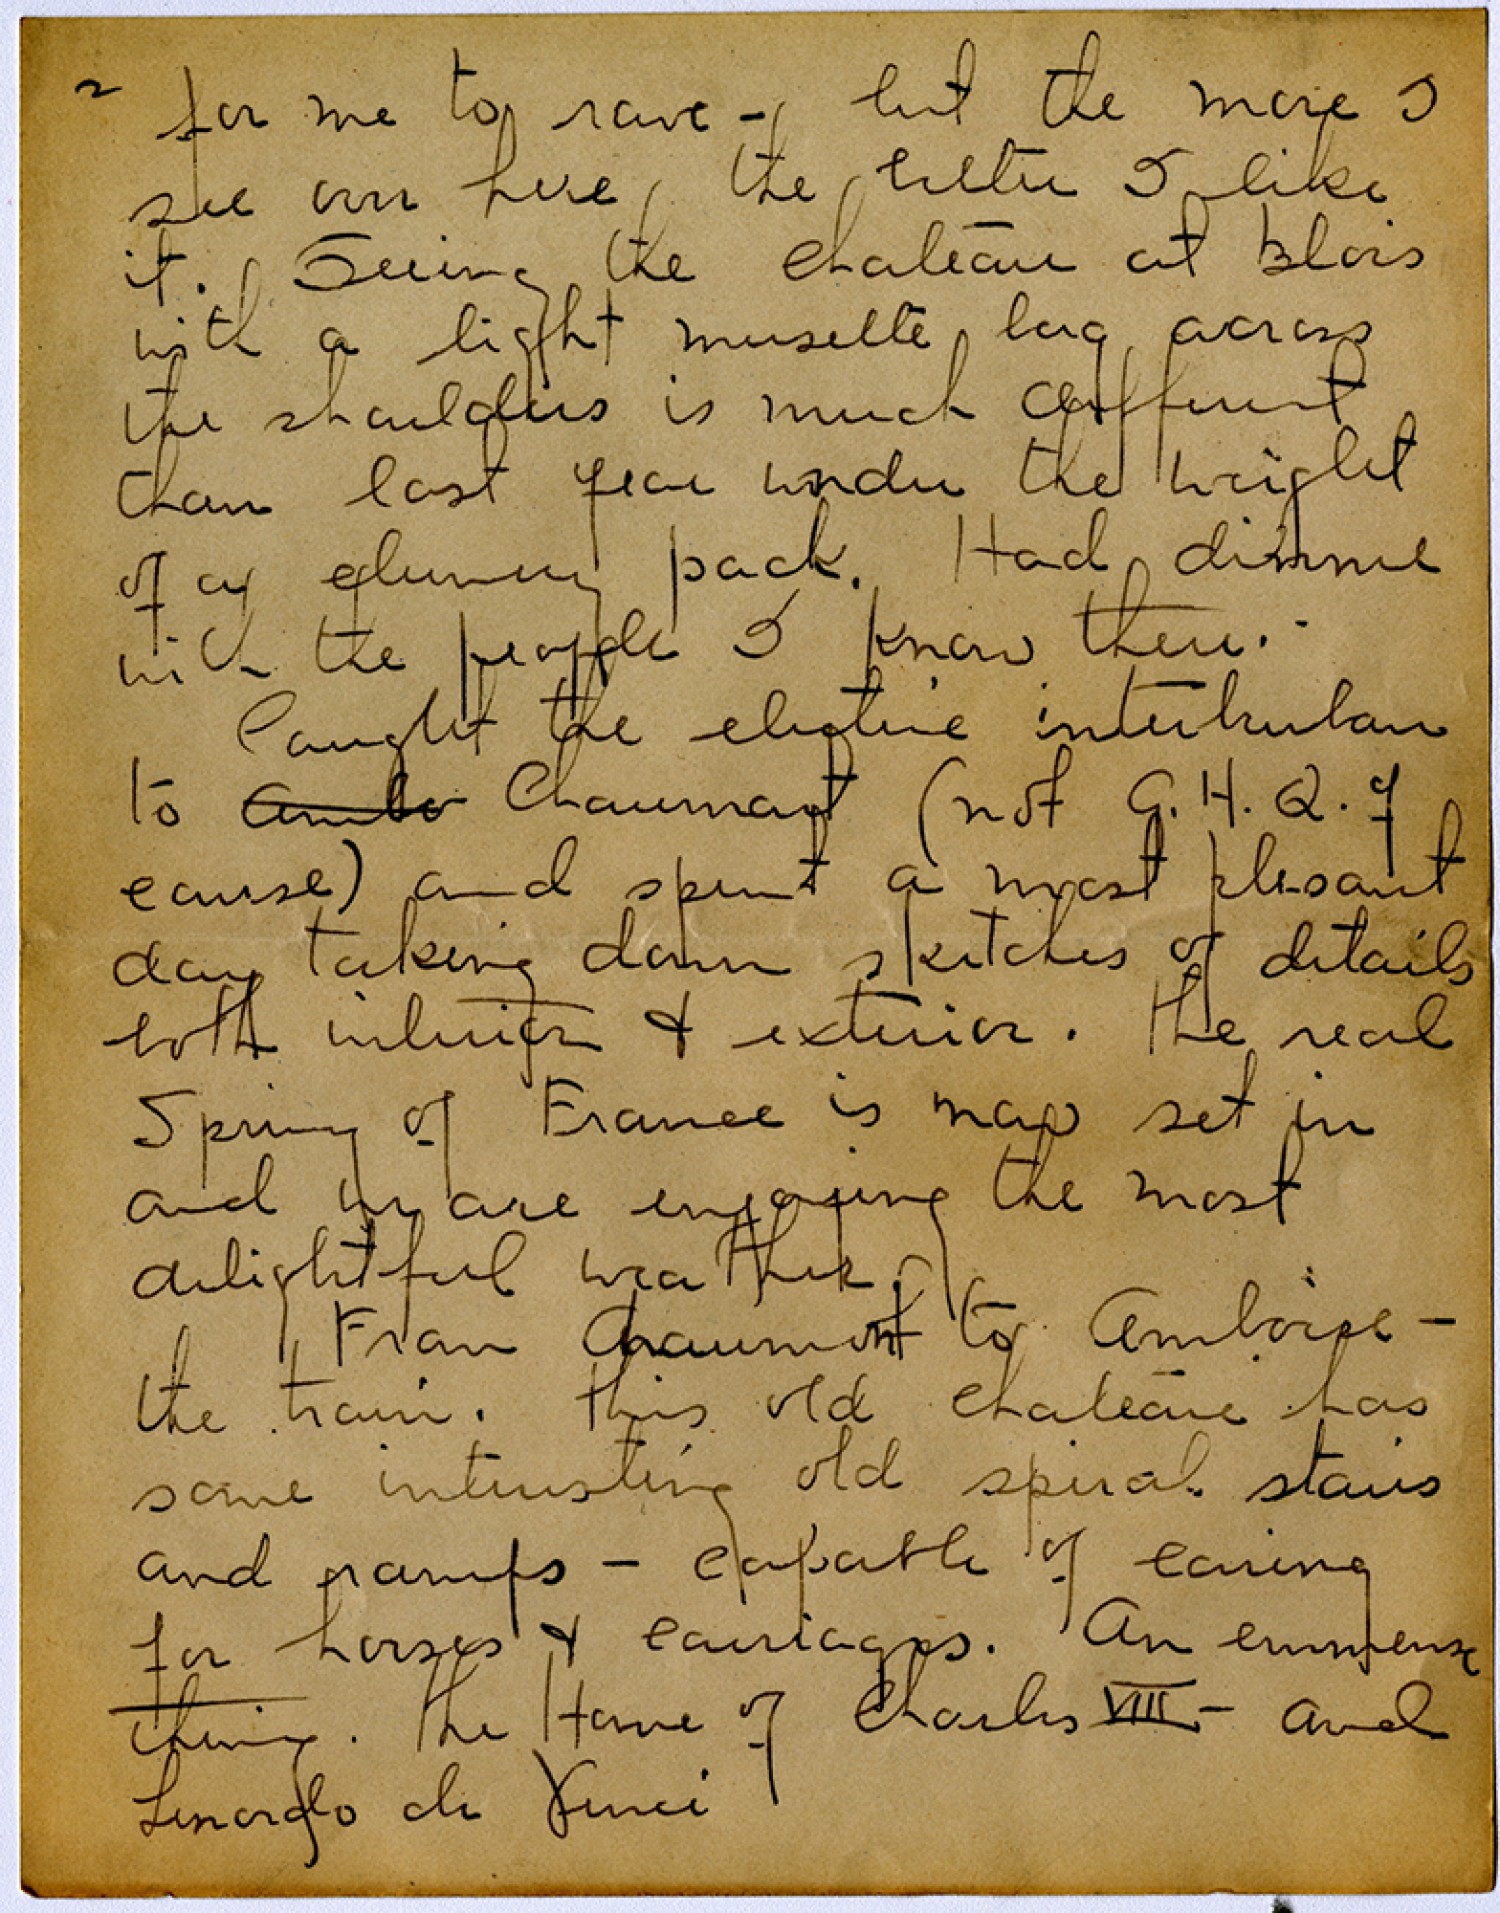 2 for me to rave -, but the more I
see over here, the better I like
it. Seeing the chateau at Blois
with a light musette bag across
the shoulders is much different
than last year under the weight
of a pack. Had dinner
with the people I know there.
Caught the electric interburban
to Ambo Chaumont (not G.H.Q. of
course) and spent a most plesant
day taking down sketches of details
both interior & exterior. The real
Spring of France is now set in
and we are enjoying the most
delightful weather.
From Chaumont to Amboise -
the train. This old chateau has
some interesting old spiral stairs
and ramps - capable of caring
for horses & carriages. An emmense
thing. The Home of Charles VIII - and
Lenordo de Vinci